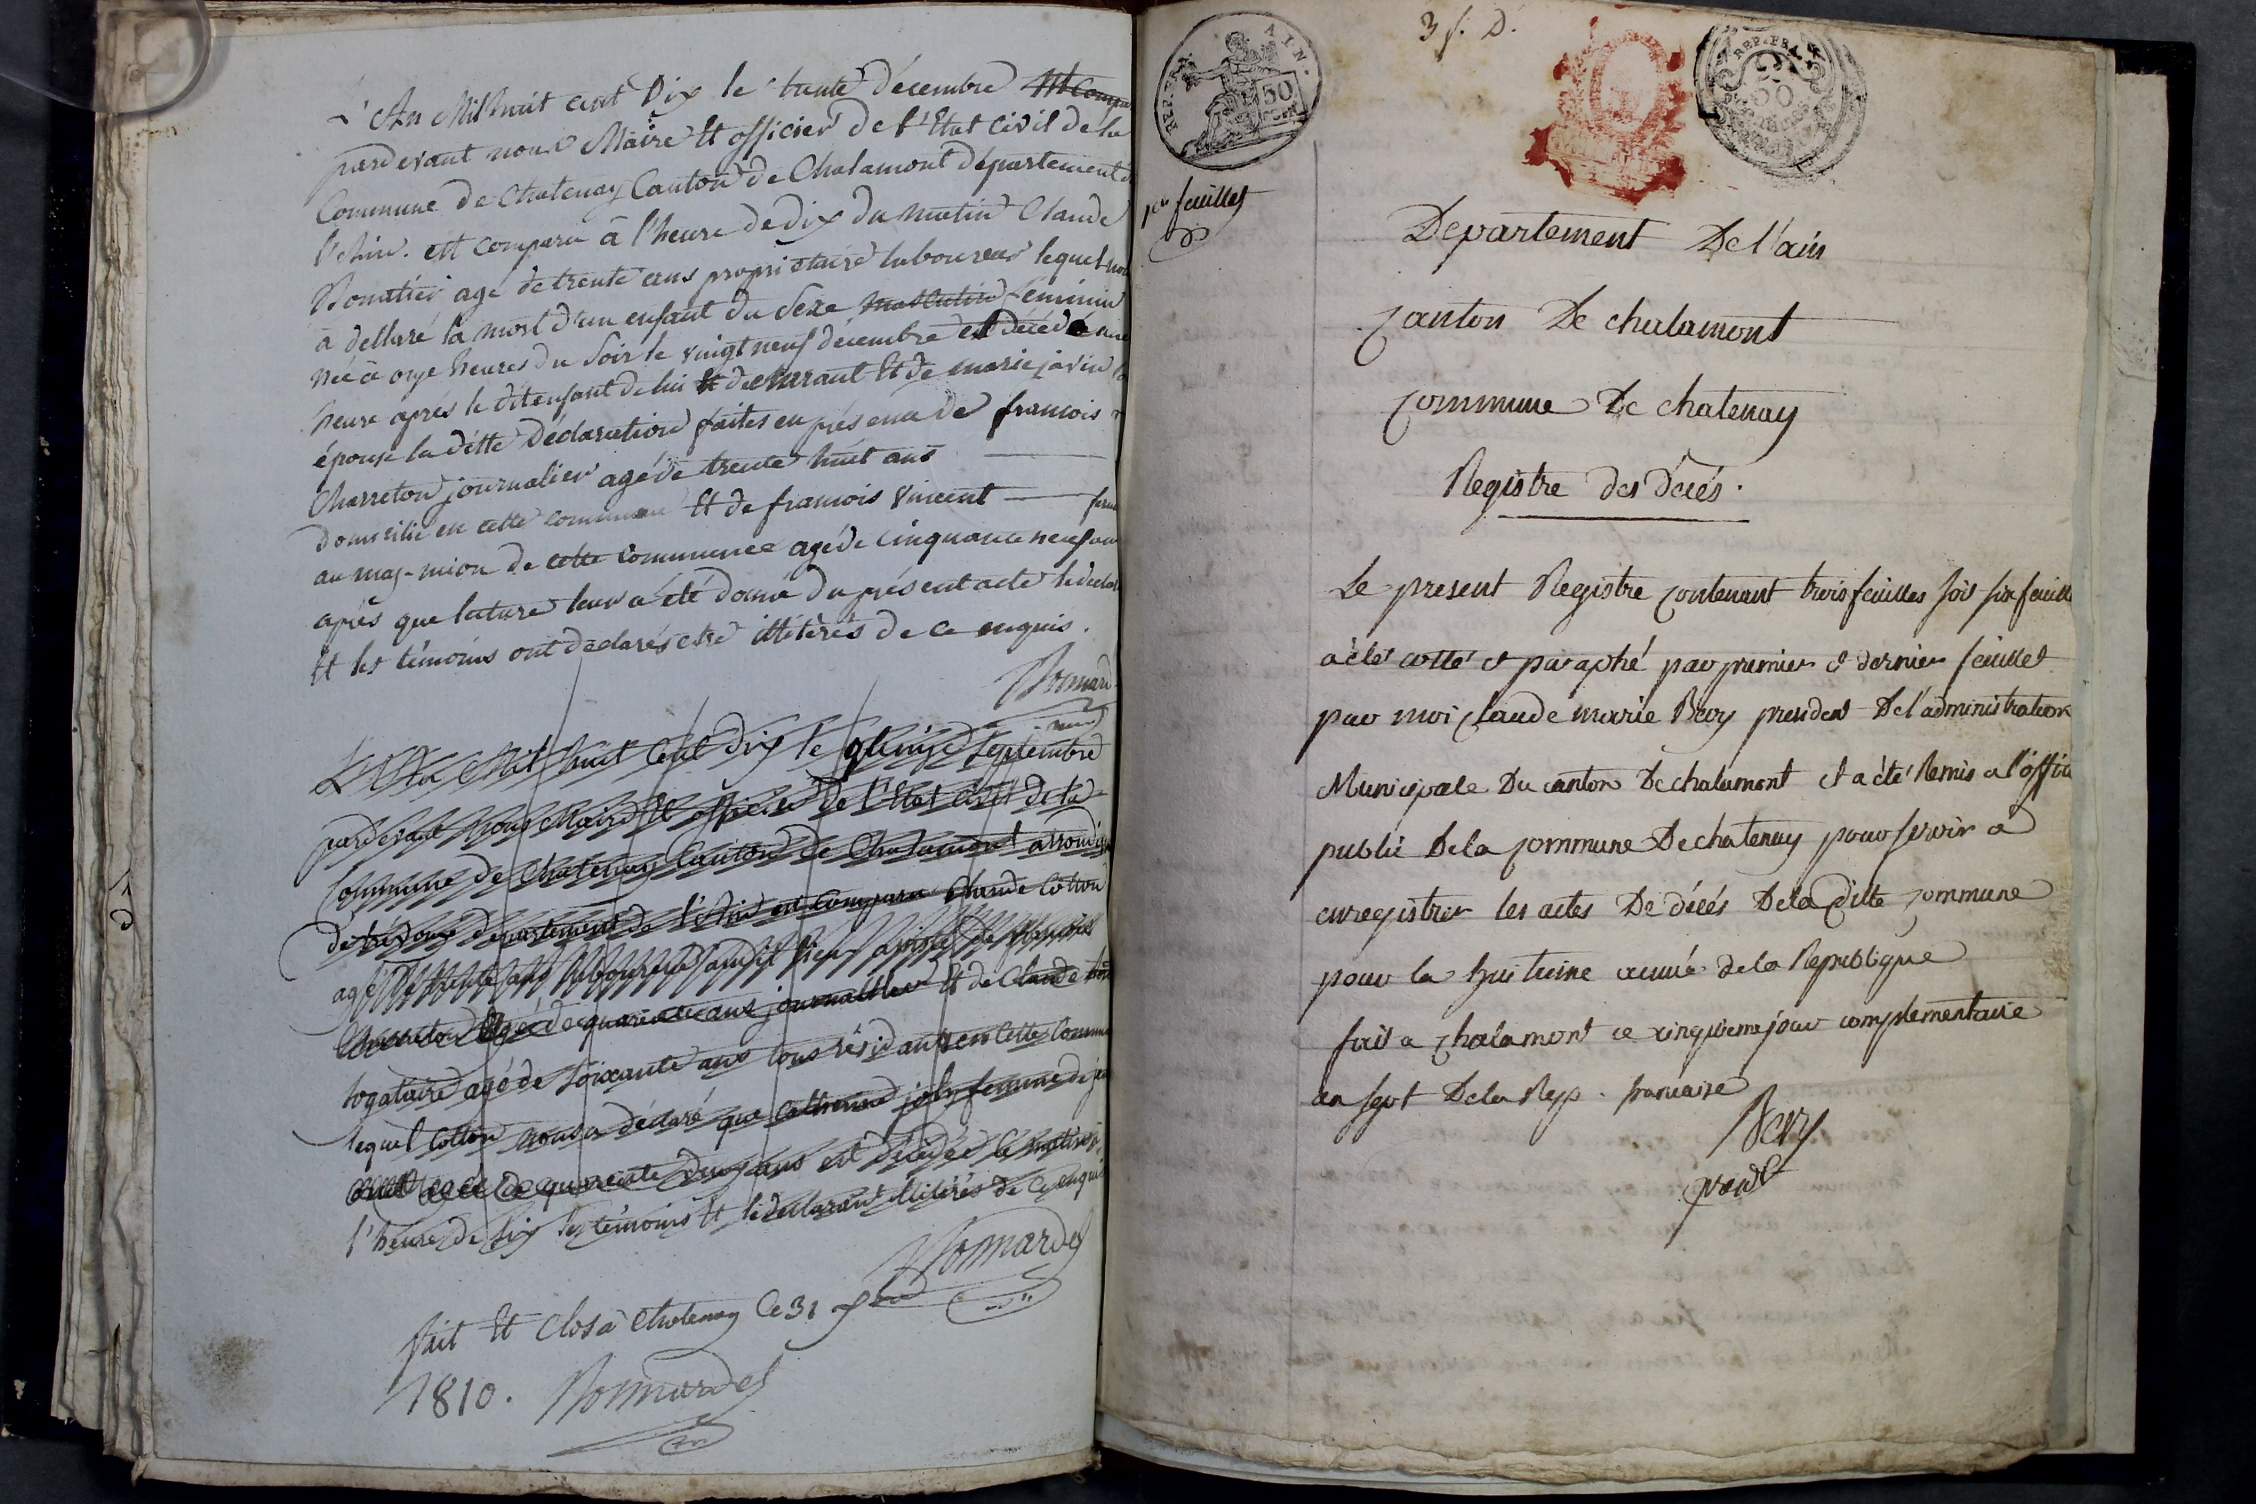 L'An Mil huit cent Dix le trente décembre
pardevant nous Maire Et officier de l'Etat Civil de la
Commune De Chatenay Canton de Chalamont département
l'Ain. est comparu à l'heure de dix du matin Claude
agé de trente ans propriétaire laboureur lequel
a declaré la mort d'un enfant du sexe masculin féminin
née à onze heures du soir le vingt neuf décembre est décédée
heure après le dit enfant de lui Et declarant Et de marie
épouse la ditte Déclaration faites en présence de francois
Charreton journalier agé de trente huit ans
domicilié en cette commune Et de francois Vincent
de cette commune agé de cinquante neuf ans
après que lecture leur a été donné du présent acte le
Et les témoins ont declarés être illitérés de ce enquis.
L'An Mil huit Cent dix le quinze septembre
pardevant nous Maire Et officier de l'Etat civil de la
Commune de Chatenay Canton de Chalamont
de trévoux département de l'Ain est comparu Claude Cotton
agé de trente ans laboureur
Charreton agé de quarante ans journallier Et de Claude
agé de soixante ans tous résidants en cette
lequel Cotton nous a déclaré que Catherine joly femme de
agée de quarante ans est décédée ce matin à
l'heure de six les témoins Et le declarant illitérés de ce enquis
Bonnardel
fait Et Clos à Chatenay Ce 31
1810. Bonnardel
3 f. D.
REP. FRA. AIN.
50
REP. FRA.
feuillet
Departement De l'ain
Canton De chalamont
Commune De chatenay
Registre des décés.
Le present Registre contenant trois feuilles soit six feuill
a été cotté et paraphé par premier et dernier feuillet
par moi Claude marie Bevy president De l'administration
Municipale Du canton De chalamont et a été Remis a l'offi
public De la commune De chatenay pour servir a
enregistrer les actes De décés De la ditte commune
pour la huitieme année de la Republique
fait a chalamont ce cinquieme jour complementaire
an sept De la Rep. francaise
Bevy
presdt